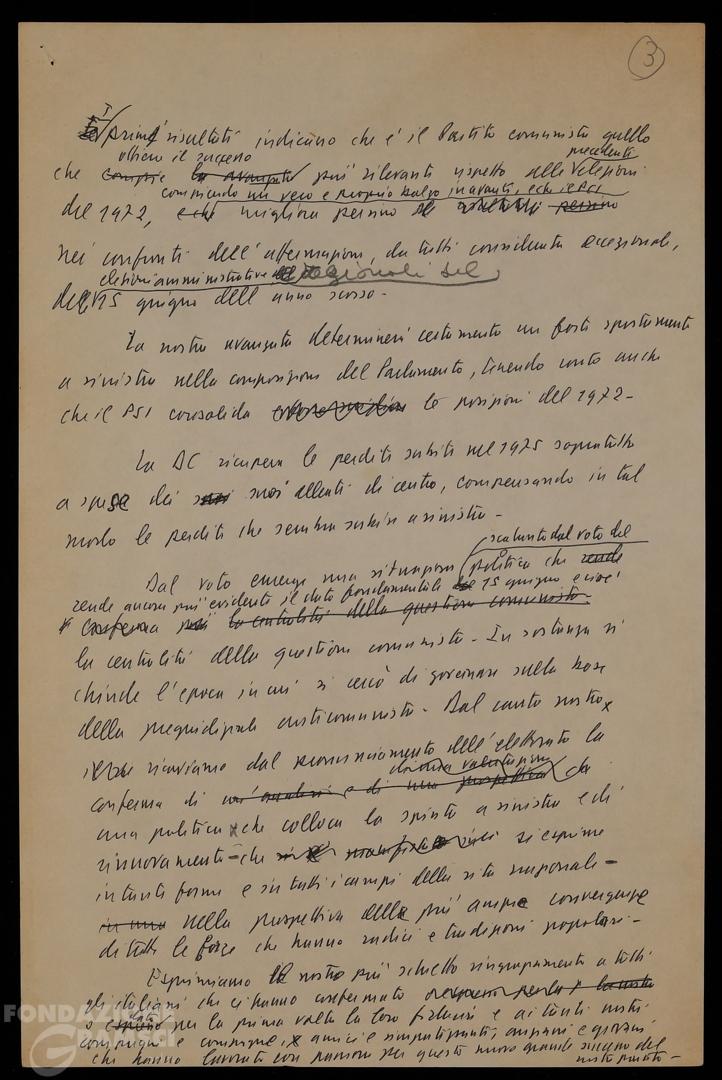 3
I primi risultati indicano che è il Partito comunista quello
ottiene il successo precedenti
che più rilevante rispetto alle elezioni
compiendo un vero e proprio balzo in avanti, e che il PCI
del 1972, migliora persino
nei confronti dell'affermazione, da tutti considerata eccezionale,
elezioni amministrative regionali del
del 15 giugno dell'anno scorso -
La nostra avanzata determinerà certamente un forte spostamento
a sinistra nella composizione del Parlamento, tenendo conto anche
che il PSI consolida le posizioni del 1972 -
La DC ricupera le perdite subite nel 1975 soprattutto
a spese dei suoi alleati di centro, compensando in tal
modo le perdite che sembra subire a sinistra -
scaturito dal voto del
Dal voto emerge una situazione politica che rende
rende ancora più evidente il dato fondamentale 15 giugno e cioè
conferma la centralità della questione comunista -
la centralità della questione comunista - In sostanza si
chiude l'epoca in cui si cercò di governare sulla base
della pregiudiziale anticomunista - Dal canto nostro
ricaviamo dal pronunciamento dell'elettorato la
di una valutazione
conferma di un'analisi e di una prospettiva da
una politica che colloca la spinta a sinistra e di
rinnovamento - che si esprime
in tante forme e in tutti i campi della vita nazionale -
in una nella prospettiva della più ampia convergenza
di tutte le forze che hanno radici e tradizioni popolari -
Esprimiamo il nostro più schietto ringraziamento a tutti
gli italiani che ci hanno confermato
o per la prima volta la loro fiducia e ai tanti nostri
compagni e compagne, amici e simpatizzanti, anziani e giovani
che hanno lavorato con passione per questo nuovo grande successo del
nostro partito -
FONDAZIONE
Gramsci